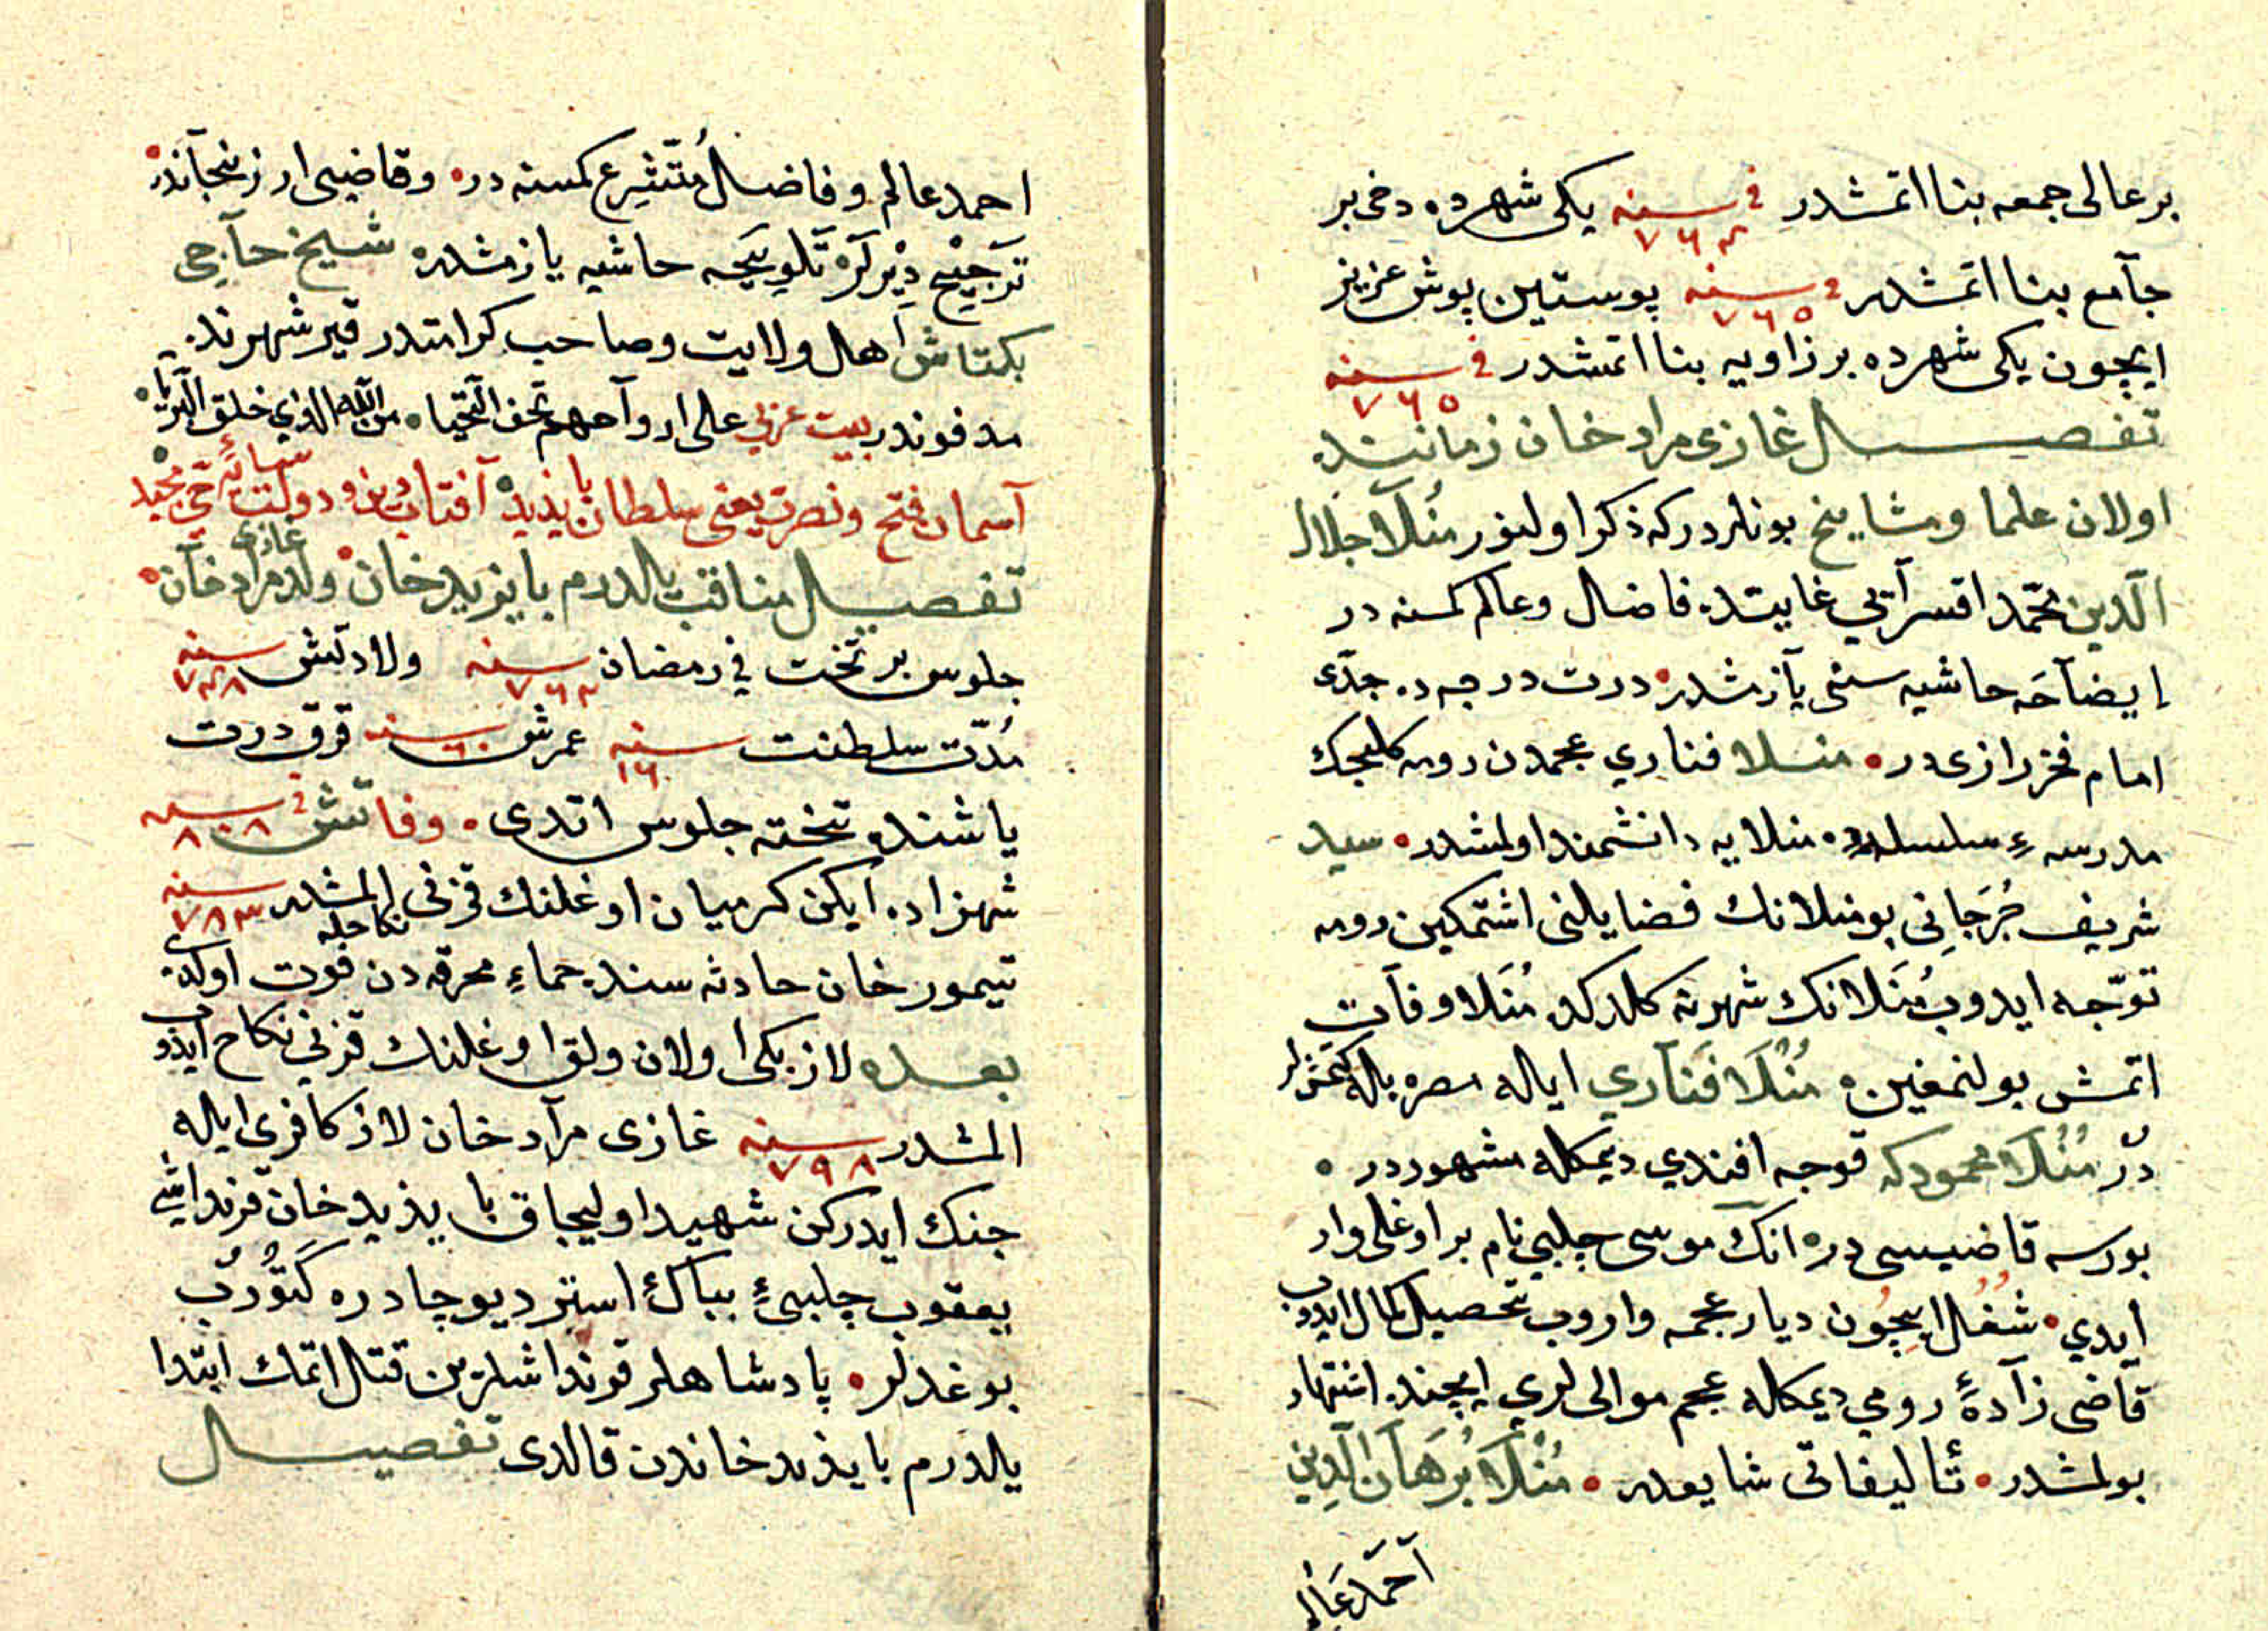 بر عالی جمعه بنا اتمشدر فی سنه ٧٦٤ یکی شهرده دخی بر
جآمع بنا اتمشدر فی سنه ٧٦٥ پوستین پوش عزیز
ایچون یکی شهرده بر زاویه بنا اتمشدر فی سنه ٧٦٥
تفصیل غازی مراد خان زماننده
اولان علما ومشایخ بونلردرکه ذکر اولنور مُنلّا جلال
الّدین محمّد اقسرآیي غایتده فاضل وعالم کمسنه در
إیضآحَه حاشیه سنی یآزمشدر درت درجه ده جدّی
امام فخر رازی در منلا فناري عجمدن رومه کلیجك
مدرسهٔ سلسلده منلایه دانشمند اولمشدر سید
شریف جُرجَانِی بو منلانك فضایلنی اشتمکین رومه
توجّه ایدوب مُنَلانك شهرنه کلدرکده مُنَلا وفآت
اتمش بولنمغین مُنْلَا فَنآري ایاله مصره باله کتمشلر
درّ مُنْلَا محمودکه قوجه افندي دیمکله مشهوردر
بورسه قاضیسی در انك موسی چلبي نام بر اوغلی وار
ایدي شغل ایچون دیار عجمه واروب تحصیل کمال ایدوب
قآضی زآدهٔ رومي دیمکله عجم موالی لري ایچنده اشتهار
بولمشدر تألیفاتی شایعدر مُنْلَا بُرهَان الّدِین
آحمَد عَالِم
احمد عالم وفاضل مُتَشَرِع کمسنه در وقاضیی ارزنجآندر
تَرجِیْح دِیْرلَرْ تَلوِیحَه حاشیه یازمشدر شیخ حآجی
بکتاش اهل ولایت وصاحب کرامتدر قیر شهرنده
مدفوندر بیت عربي علی اروآحهم تحف التّحیا من اللّه الذي خلق البرّیا
آسمان فتح ونصرت یعنی سلطان بایذید آفتاب دین ودولت سایهٔ حيّ مجید
تفصیل مناقب یالدرم بایزید خان ولد غازی مراد خآن
جلوس بر تخت في رمضان سنه ولادتش سنه
مُدّت سلطنت سنه ١٦ عمرش سنه ٦٠ قرق درت
یاشنده تخته جلوس اتدی وفاتش فی سنه ٨٠٨
شهزاده ایکن کرمیان اوغلنك قزنی نکاحله المشدر سنه ٧٨٣
تیمور خان حادثه سنده حماء محرقه دن فوت اولدی
بعده لاز بکی اولان ولق اوغلنك قزني نکاح ایدوب
المشدر سنه ٧٩٨ غازی مرآد خان لاز کافری ایاله
جنك ایدرکن شهید اولیجاق بایذید خان قرنداشی
یعقوب چلبیٔ ببآك استر دیو چادره کَتُوُرُب
بوغدلر پادشاهلر قرنداشلرین قتل اتمك ابتدا
یالدرم بایذید خاندن قالدی تفصیل